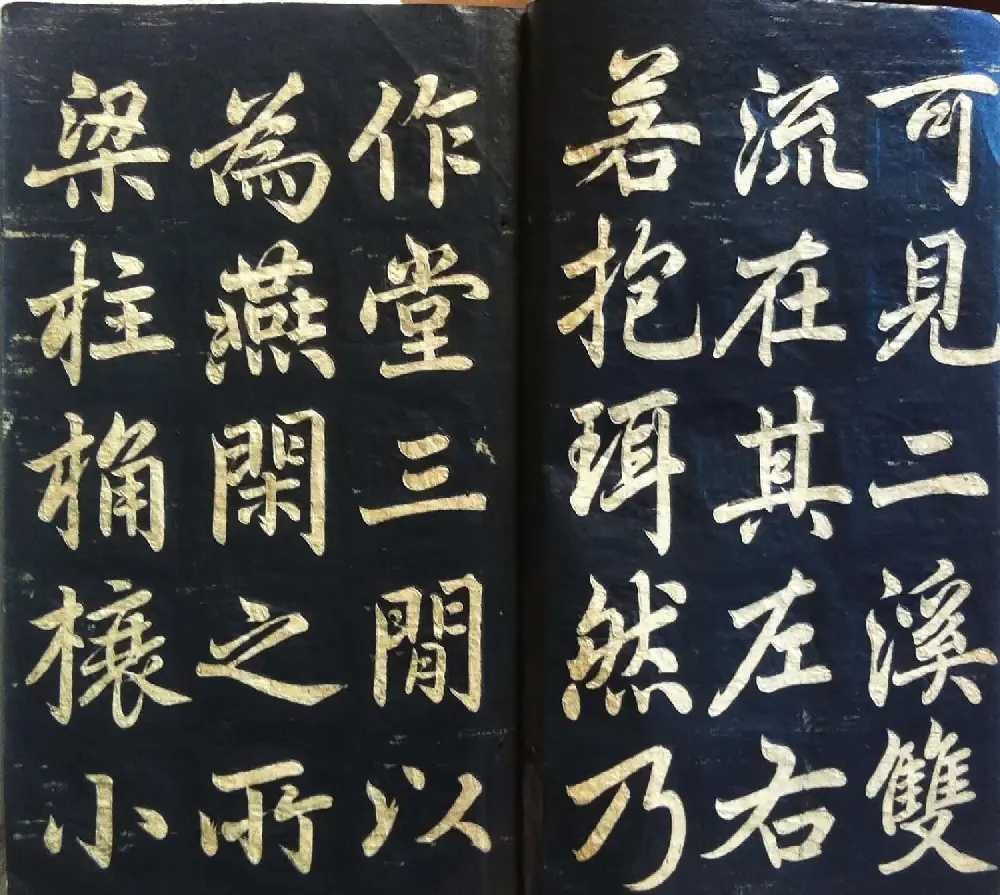 可見二溪雙
流在其左右
若抱珥然乃
作堂三間以
為燕閑之所
梁柱桷榱小